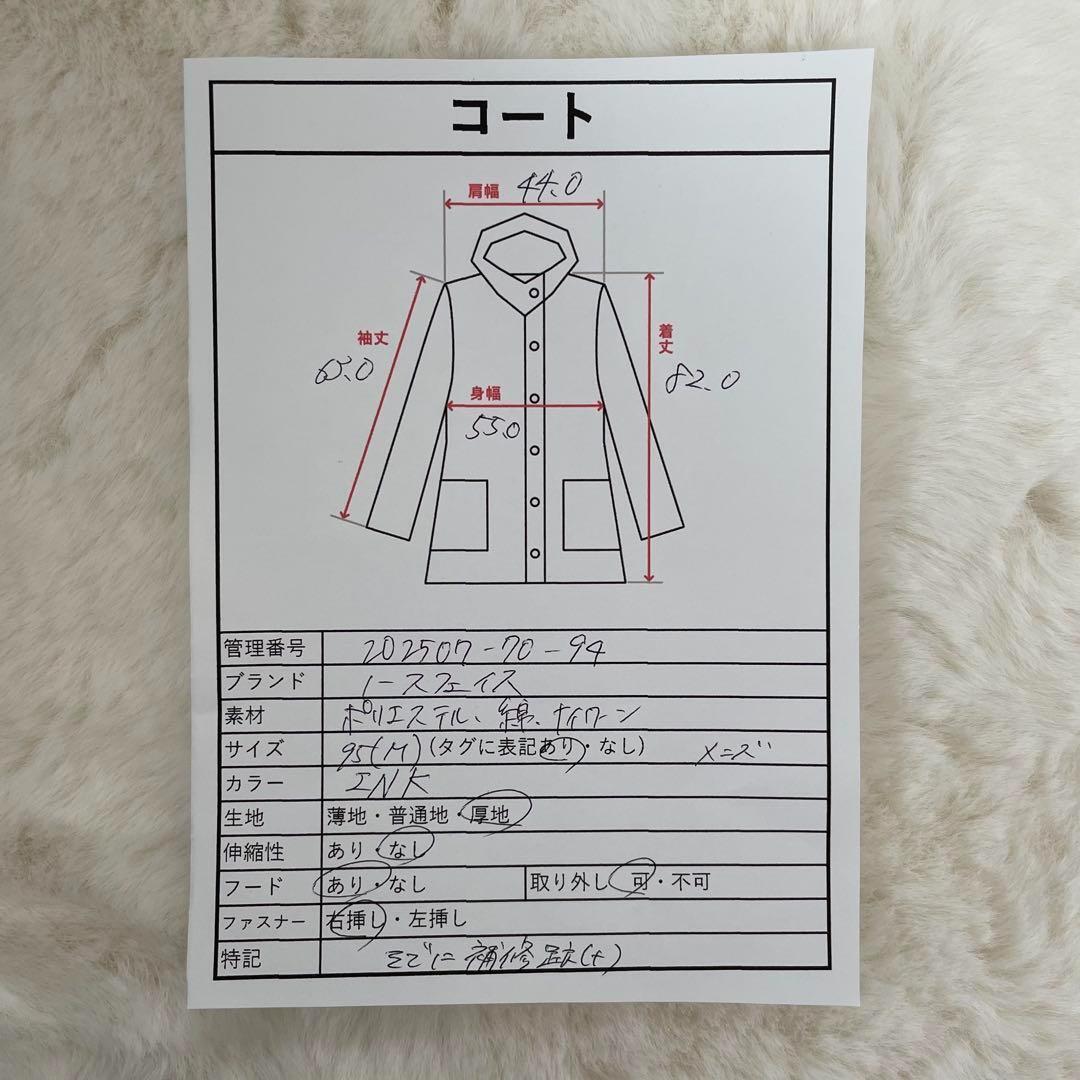 コート
肩幅 44.0
袖丈
着丈
82.0
身幅
55.0
管理番号 202507-70-94
ブランド ノースフェイス
素材 ポリエステル、綿、ナイロン
サイズ 95(M) (タグに表記あり・なし) メンズ
カラー INK
生地 薄地・普通地・厚地
伸縮性 あり・なし
フード あり・なし 取り外し 可・不可
ファスナー 右挿し・左挿し
特記 そでに補修跡(+)